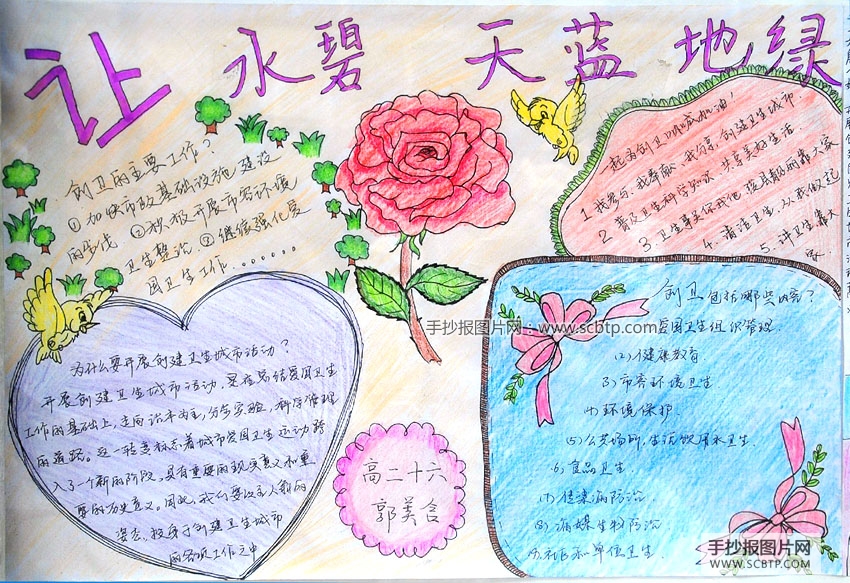 让 水 碧 天 蓝 地 绿
创卫的主要工作？
①加快市政基础设施 建设
的步伐 ②积极开展市容环境
卫生整治 ③继续强化爱
国卫生工作.......
一起为创卫呐喊加油！
1.我参与、我奉献、我分享，创建卫生城市
2.普及卫生科学知识，共享美好生活.
3.卫生 靠大家
4.清洁卫生，从我做起
5.讲卫生靠大
家
为什么要开展创建卫生城市活动？
开展创建卫生城市活动，是在总结爱国卫生
工作的基础上，走向 科学管理
的道路。这一转变标志着城市爱国卫生运动跨
入了一个新的阶段，具有重要的现实意义和重
要的历史意义。因此，我们要以主人翁的
姿态，投身于创建卫生城市
的各项工作之中
高二十六
郭美含
创卫包括哪些内容？
爱国卫生组织管理.
(2)健康教育
(3)市容环境卫生
(4)环境保护.
(5)公共场所，生活饮用水卫生
(6)食品卫生.
(7)传染病防治.
(8)病媒生物防治
(9)社区和单位卫生.
手抄报图片网：www.scbtp.com
手抄报图片网
WWW.SCBTP.COM